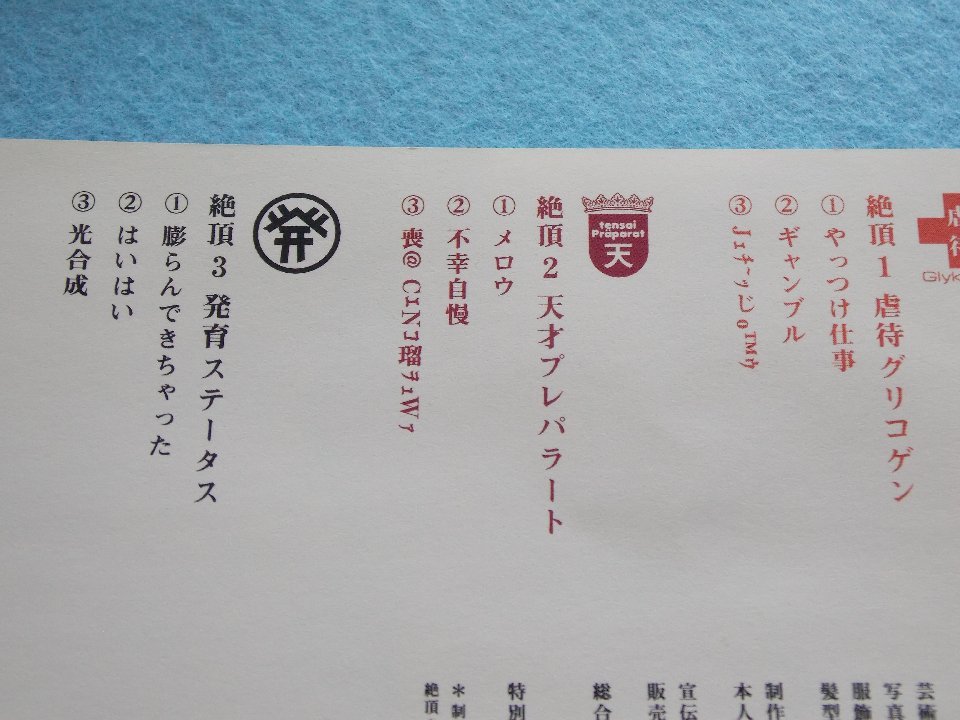 虐待
Glyk
絶頂1 虐待グリコゲン
①やっつけ仕事
②ギャンブル
tensai
Präparat
天
絶頂2 天才プレパラート
①メロウ
②不幸自慢
発
絶頂3 発育ステータス
①膨らんできちゃった
②はいはい
③光合成
芸術
写真
服飾
髪型
制作
本人
宣伝
販売
総合
特別
＊制
絶頂